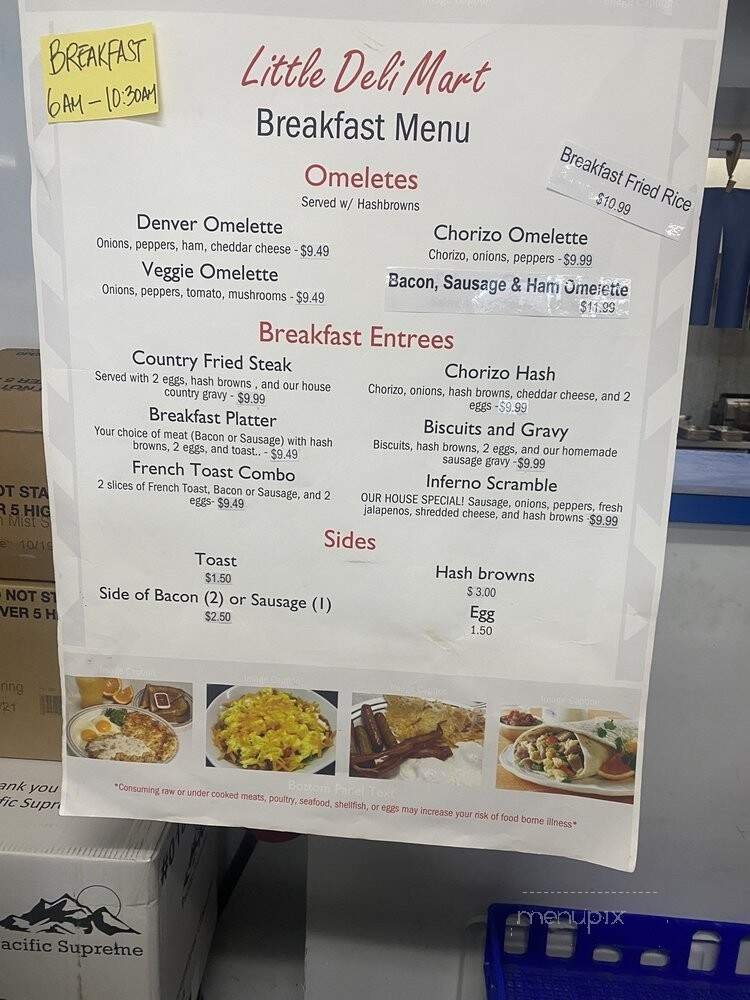 BREAKFAST
6AM - 10:30AM
Little Deli Mart
Breakfast Menu
Breakfast Fried Rice
$10.99
Omeletes
Served w/ Hashbrowns
Denver Omelette
Onions, peppers, ham, cheddar cheese - $9.49
Veggie Omelette
Onions, peppers, tomato, mushrooms - $9.49
Chorizo Omelette
Chorizo, onions, peppers - $9.99
Bacon, Sausage & Ham Omelette
$11.99
Breakfast Entrees
Country Fried Steak
Served with 2 eggs, hash browns , and our house
country gravy - $9.99
Breakfast Platter
Your choice of meat (Bacon or Sausage) with hash
browns, 2 eggs, and toast.. - $9.49
French Toast Combo
2 slices of French Toast, Bacon or Sausage, and 2
eggs- $9.49
Chorizo Hash
Chorizo, onions, hash browns, cheddar cheese, and 2
eggs -$9.99
Biscuits and Gravy
Biscuits, hash browns, 2 eggs, and our homemade
sausage gravy -$9.99
Inferno Scramble
OUR HOUSE SPECIAL! Sausage, onions, peppers, fresh
jalapenos, shredded cheese, and hash browns -$9.99
Sides
Toast
$1.50
Side of Bacon (2) or Sausage (1)
$2.50
Hash browns
$ 3.00
Egg
1.50
Image Caption
Image Caption
Image Caption
Image Caption
Bottom Panel Text
*Consuming raw or under cooked meats, poultry, seafood, shellfish, or eggs may increase your risk of food borne illness*
OT STA
R 5 HIG
Mist S
10/19
NOT ST
VER 5 H
ring
/21
ank you
fic Supr
acific Supreme
menupix